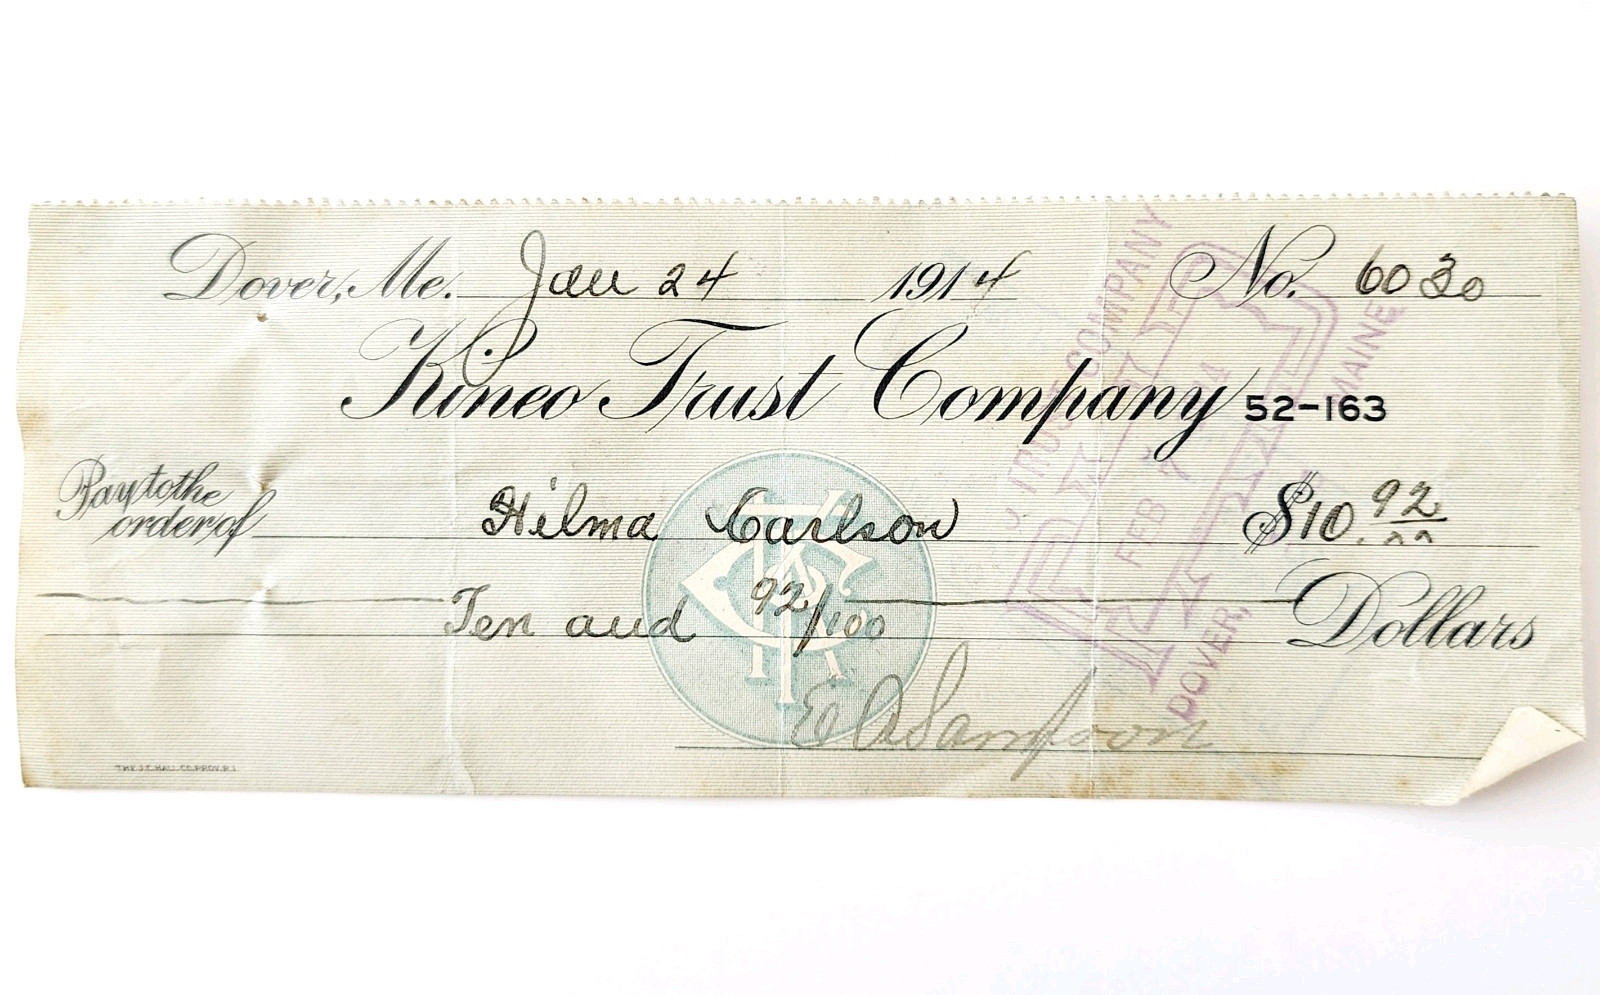 Dover, Me. Jan 24 1914 No. 6030
Kineo Trust Company 52-163
Pay to the
order of Hilma Carlson $10.92
Ten and 92/100 Dollars
E A Sampson
THE J.C. HALL CO. PROV. R.I.
TRUST COMPANY
FEB 7 14
DOVER, MAINE